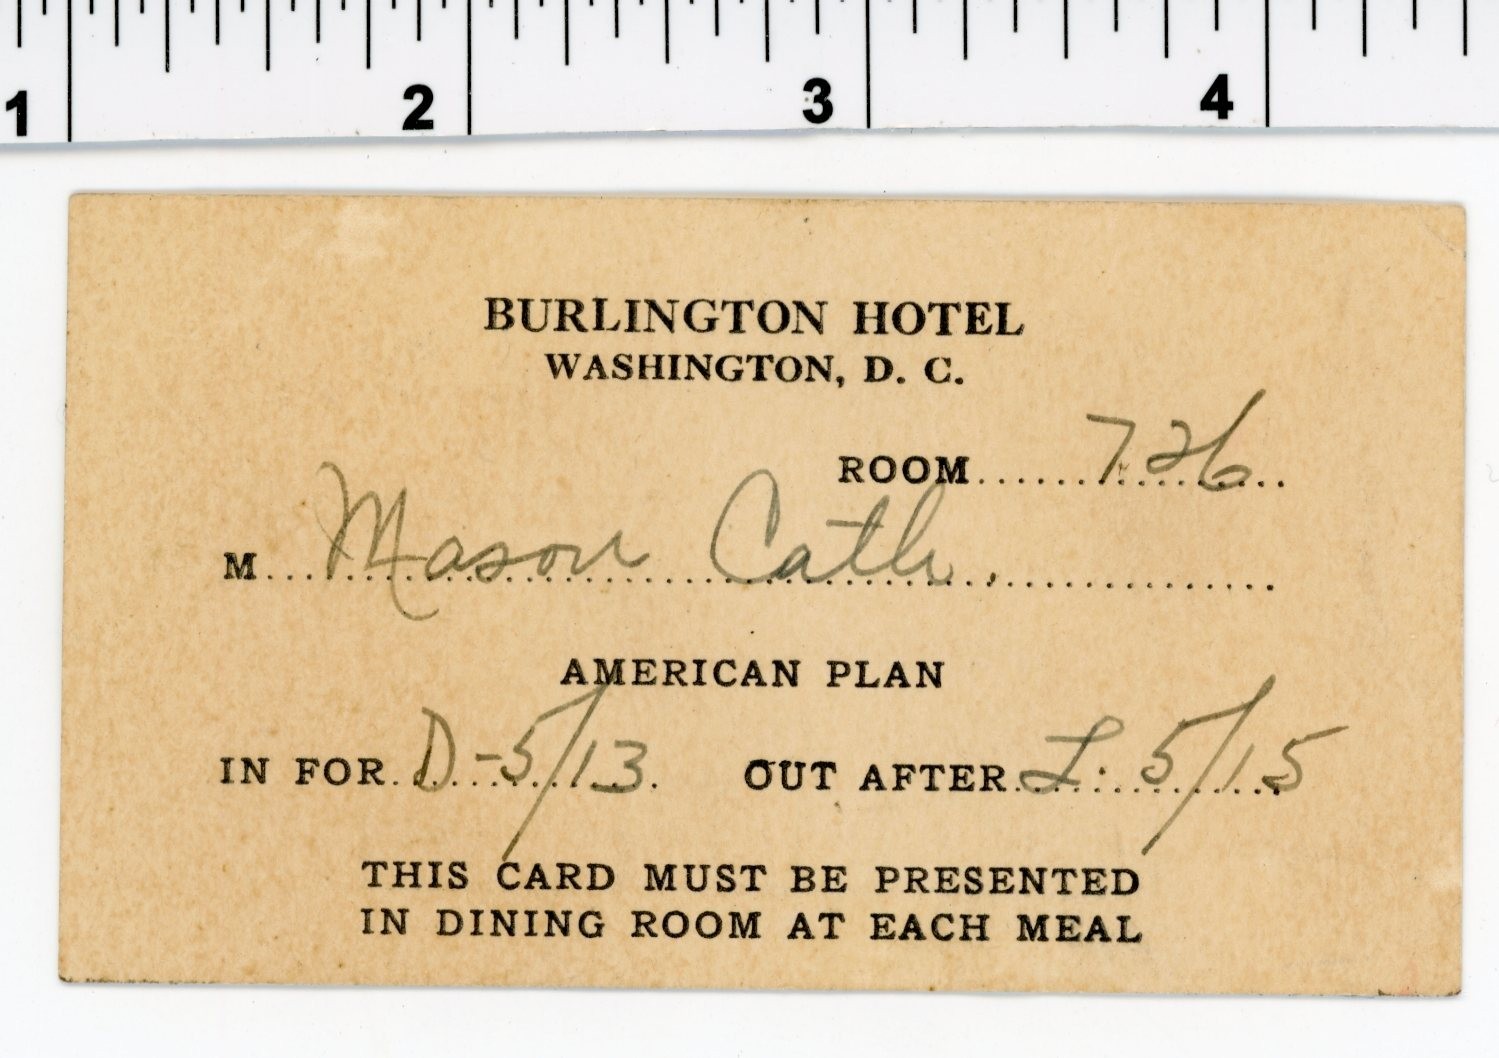 1 2 3 4
BURLINGTON HOTEL
WASHINGTON, D. C.
ROOM 726
M Mason Cath.
AMERICAN PLAN
IN FOR D-5/13. OUT AFTER L: 5/15
THIS CARD MUST BE PRESENTED
IN DINING ROOM AT EACH MEAL